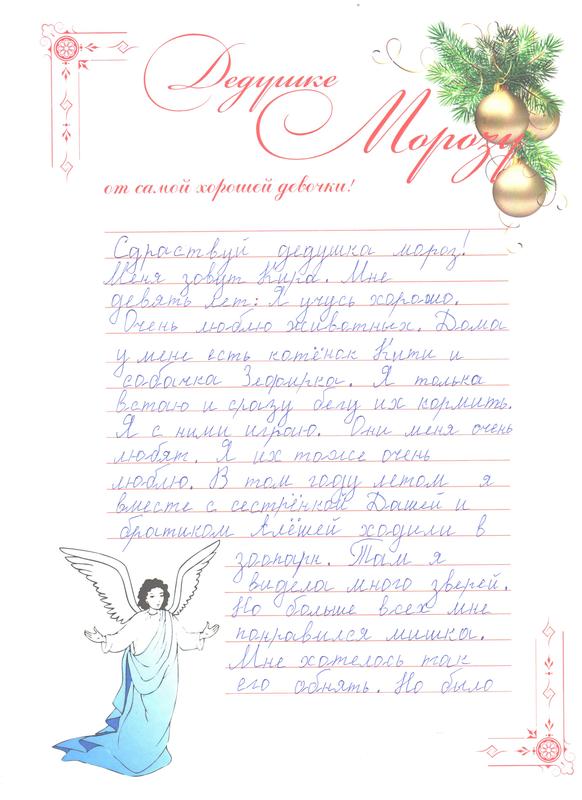 Дедушке
Морозу
от самой хорошей девочки!
Сдраствуй дедушка мороз!
Меня зовут Кира. Мне
девять лет: Я учусь хорошо.
Очень люблю животных. Дома
у меня есть котёнок Кити и
собачка Зефирка. Я только
встаю и сразу бегу их кормить.
Я с ними играю. Они меня очень
любят. Я их тоже очень
люблю. В том году летом я
вместе с сестрёнкой Дашей и
братиком Алёшей ходили в
зоопарк. Там я
видела много зверей.
Но больше всех мне
понравился мишка.
Мне хотелось так
его обнять. Но было